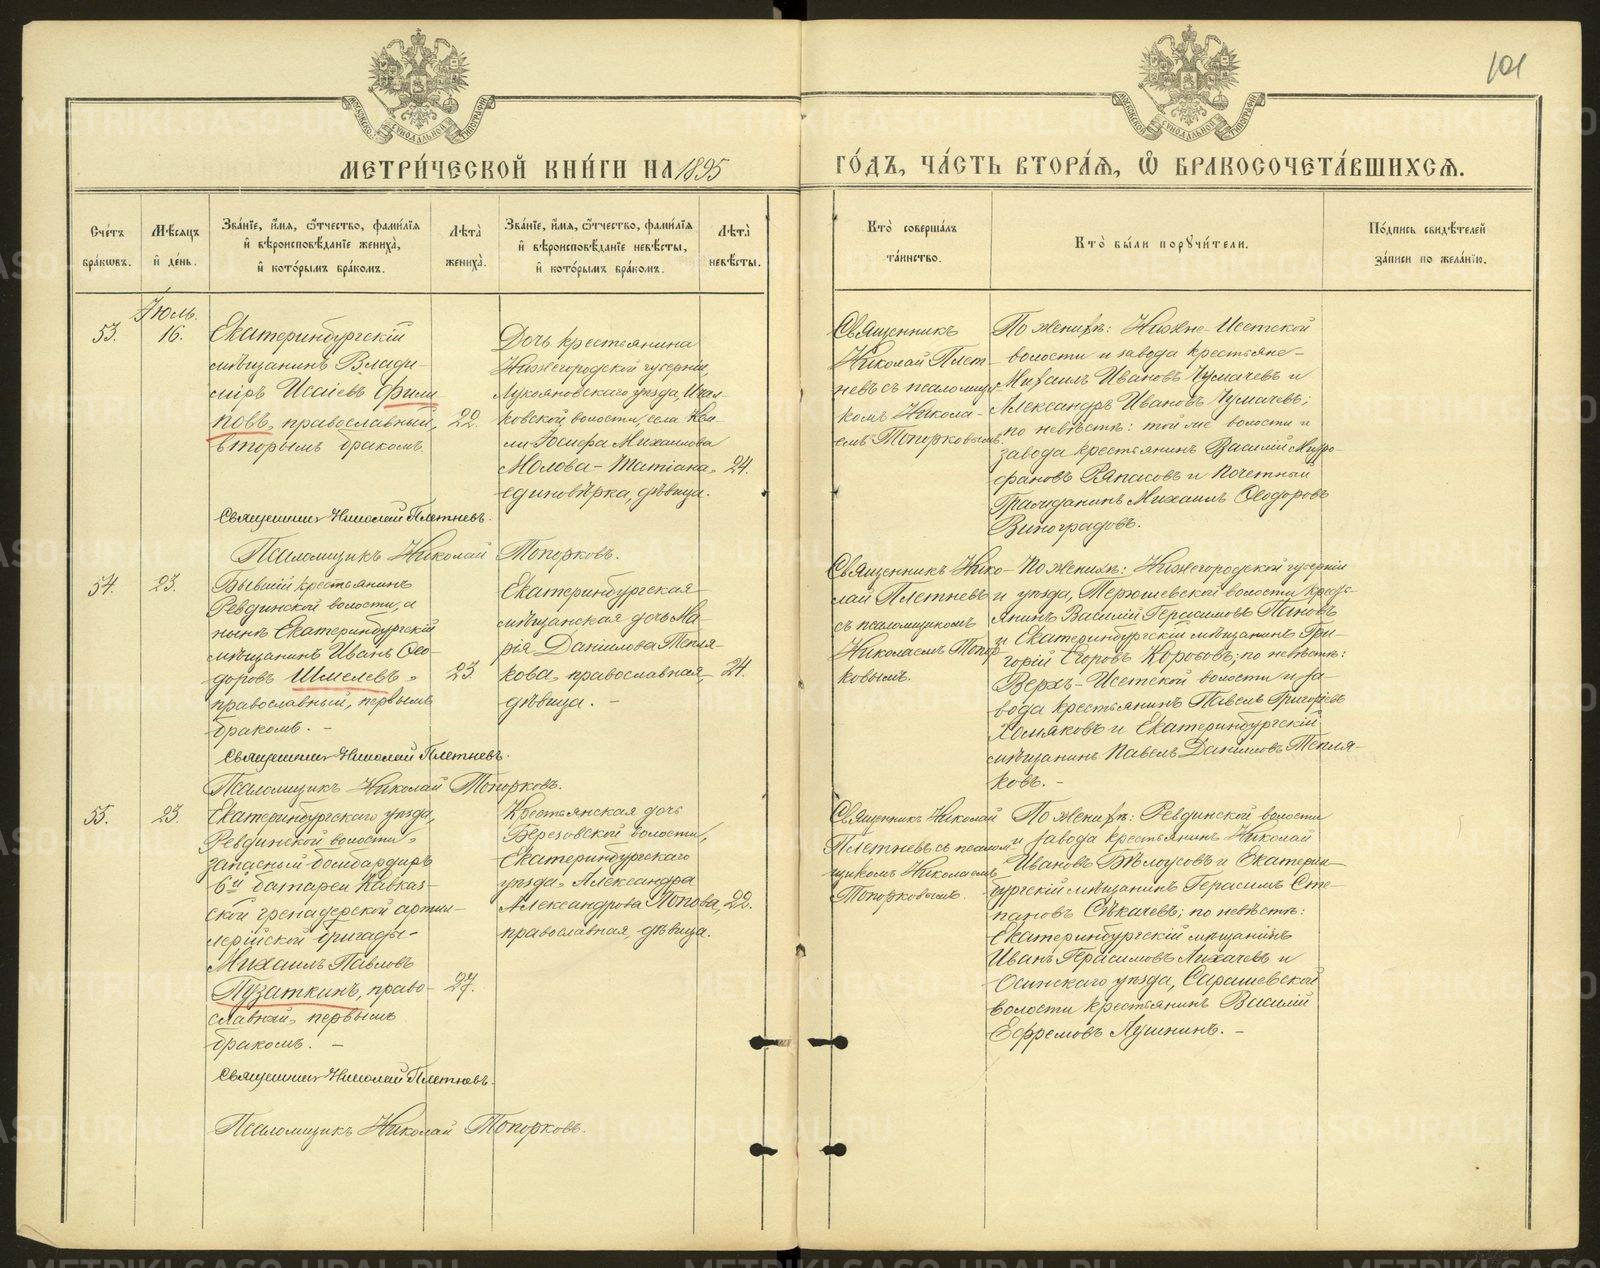 101
МЕТРИ́ЧЕСКОЙ КНИ́ГИ НА 1895
ГО́ДЪ, ЧА́СТЬ ВТОРА́Я, Ѡ БРАКОСОЧЕТА́ВШИХСЯ.
Сче́тъ бра́ковъ.
Мѣ́сяцъ и҆ де́нь.
Зва́нїе, и҆́мя, ѻ҆́тчество, фами́лїя
и҆ вѣроисповѣ́данїе жениха̀,
и҆ кото́рымъ бра́комъ.
Лѣ́та̀ жениха̀.
Зва́нїе, и҆́мя, ѻ҆́тчество, фами́лїя
и҆ вѣроисповѣ́данїе невѣ́сты,
и҆ кото́рымъ бра́комъ.
Лѣ́та̀ невѣ́сты.
Кто̀ соверша́лъ та́инство.
Кто̀ бы́ли порꙋчи́тели.
По́дпись свидѣ́телей за́писи по жела́нїю.
Іюль.
53.
16.
Екатеринбургскій
мѣщанинъ Влади-
міръ Исаіевъ Фили
повъ, православный,
вторымъ бракомъ.
22.
Дочь крестьянина
Нижегородской губерніи,
Лукояновскаго уѣзда, Ичал-
ковской волости, села Ке
ли Іосифа Михаилова
Молова - Татіана,
единовѣрка, дѣвица.
24.
Священникъ
Николай Плет-
невъ съ псаломщи-
комъ Никола-
емъ Топорковымъ.
По женихѣ: Нижне-Исетской
волости и завода крестьяне-
Михаилъ Ивановъ Чумачевъ и
Александръ Ивановъ Чумачевъ;
по невѣстѣ: той же волости и
завода крестьянинъ Василій Митро-
фановъ Ряпасовъ и Почетный
Гражданинъ Михаилъ Ѳеодоровъ
Виноградовъ.
Священникъ Николай Плетневъ.
Псаломщикъ Николай Топорковъ.
54.
23.
Бывшій крестьянинъ
Ревдинской волости, а
нынѣ Екатеринбургскій
мѣщанинъ Иванъ Ѳео-
доровъ Шмелевъ,
православный, первымъ
бракомъ. -
23.
Екатеринбургская
мѣщанская дочь Ма-
рія Даніилова Тепля-
кова, православная,
дѣвица. -
24.
Священникъ Нико-
лай Плетневъ
съ псаломщикомъ
Николаемъ Топор-
ковымъ.
По женихѣ: Нижегородской губерніи
и уѣзда, Терюшевской волости кресть-
янинъ Василій Герасимовъ Пановъ
и Екатеринбургскій мѣщанинъ Гри-
горій Егоровъ Коробовъ; по невѣстѣ:
Верхъ-Исетской волости и за-
вода крестьянинъ Павелъ Григорьевъ
Хомяковъ и Екатеринбургскій
мѣщанинъ Павелъ Даніиловъ Тепля-
ковъ. -
Священникъ Николай Плетневъ.
Псаломщикъ Николай Топорковъ.
55.
23.
Екатеринбургскаго уѣзда,
Ревдинской волости,
запасный бомбардиръ
6й батареи Кавказ-
ской гренадерской артил-
лерійской бригады-
Михаилъ Павловъ
Пузаткинъ, право-
славный, первымъ
бракомъ. -
27.
Крестьянская дочь
Березовской волости,
Екатеринбургскаго
уѣзда, Александра
Александрова Попова,
православная, дѣвица.
22.
Священникъ Николай
Плетневъ съ псалом
щикомъ Николаемъ
Топорковымъ.
По женихѣ: Ревдинской волости
и завода крестьянинъ Николай
Ивановъ Бѣлоусовъ и Екатерин-
бургскій мѣщанинъ Герасимъ Сте-
пановъ Сѣкачевъ; по невѣстѣ:
Екатеринбургскій мѣщанинъ
Иванъ Герасимовъ Лихачевъ и
Осинскаго уѣзда, Сарашевской
волости крестьянинъ Василій
Ефремовъ Лушнинъ. -
Священникъ Николай Плетневъ.
Псаломщикъ Николай Топорковъ.